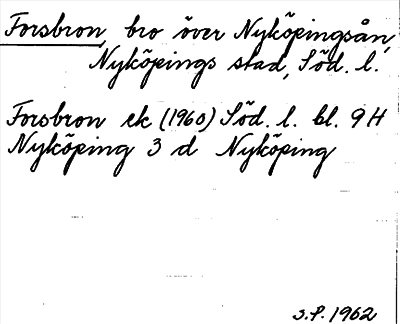 Forsbron, bro över Nyköpingsån,
Nyköpings stad, Söd. l.
Forsbron ek (1960) Söd. l. bl. 9H
Nyköping 3 d Nyköping
S.P. 1962